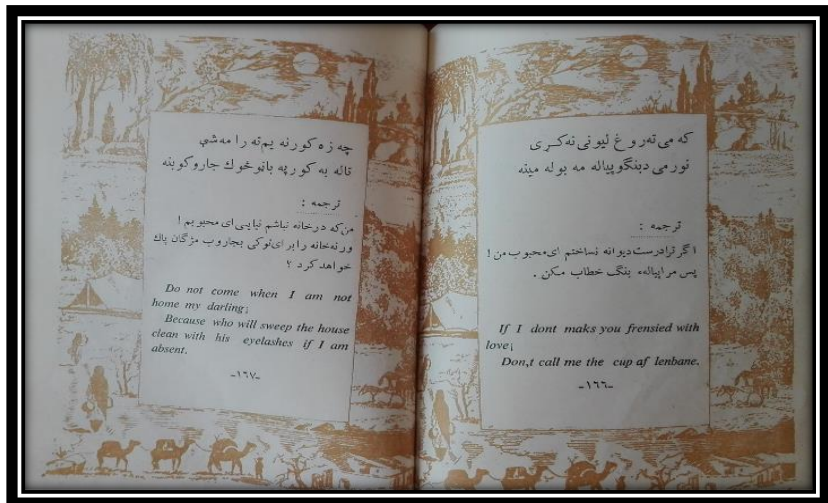 که می ته روغ لیونی نه کړی
نور می دبنگو پیاله مه بوله مینه
ترجمه :
اگر ترا درست دیوانه نساختم ای محبوب من !
پس مرا پیالهء بنگ خطاب مکن .
If I dont maks you frensied with
love¡
Don,t call me the cup af lenbane.
-١٦٦-
چه زه کور نه یم ته را مه شې
تاله به کور په بانوځوك جارو کوینه
ترجمه :
من که در خانه نباشم نیایی ای محبوبم !
ور نه خانه را برای توکی بجاروب مژگان پاك
خواهد کرد ؟
Do not come when I am not
home my darling¡
Because who will sweep the house
clean with his eyelashes if I am
absent.
-١٦٧-